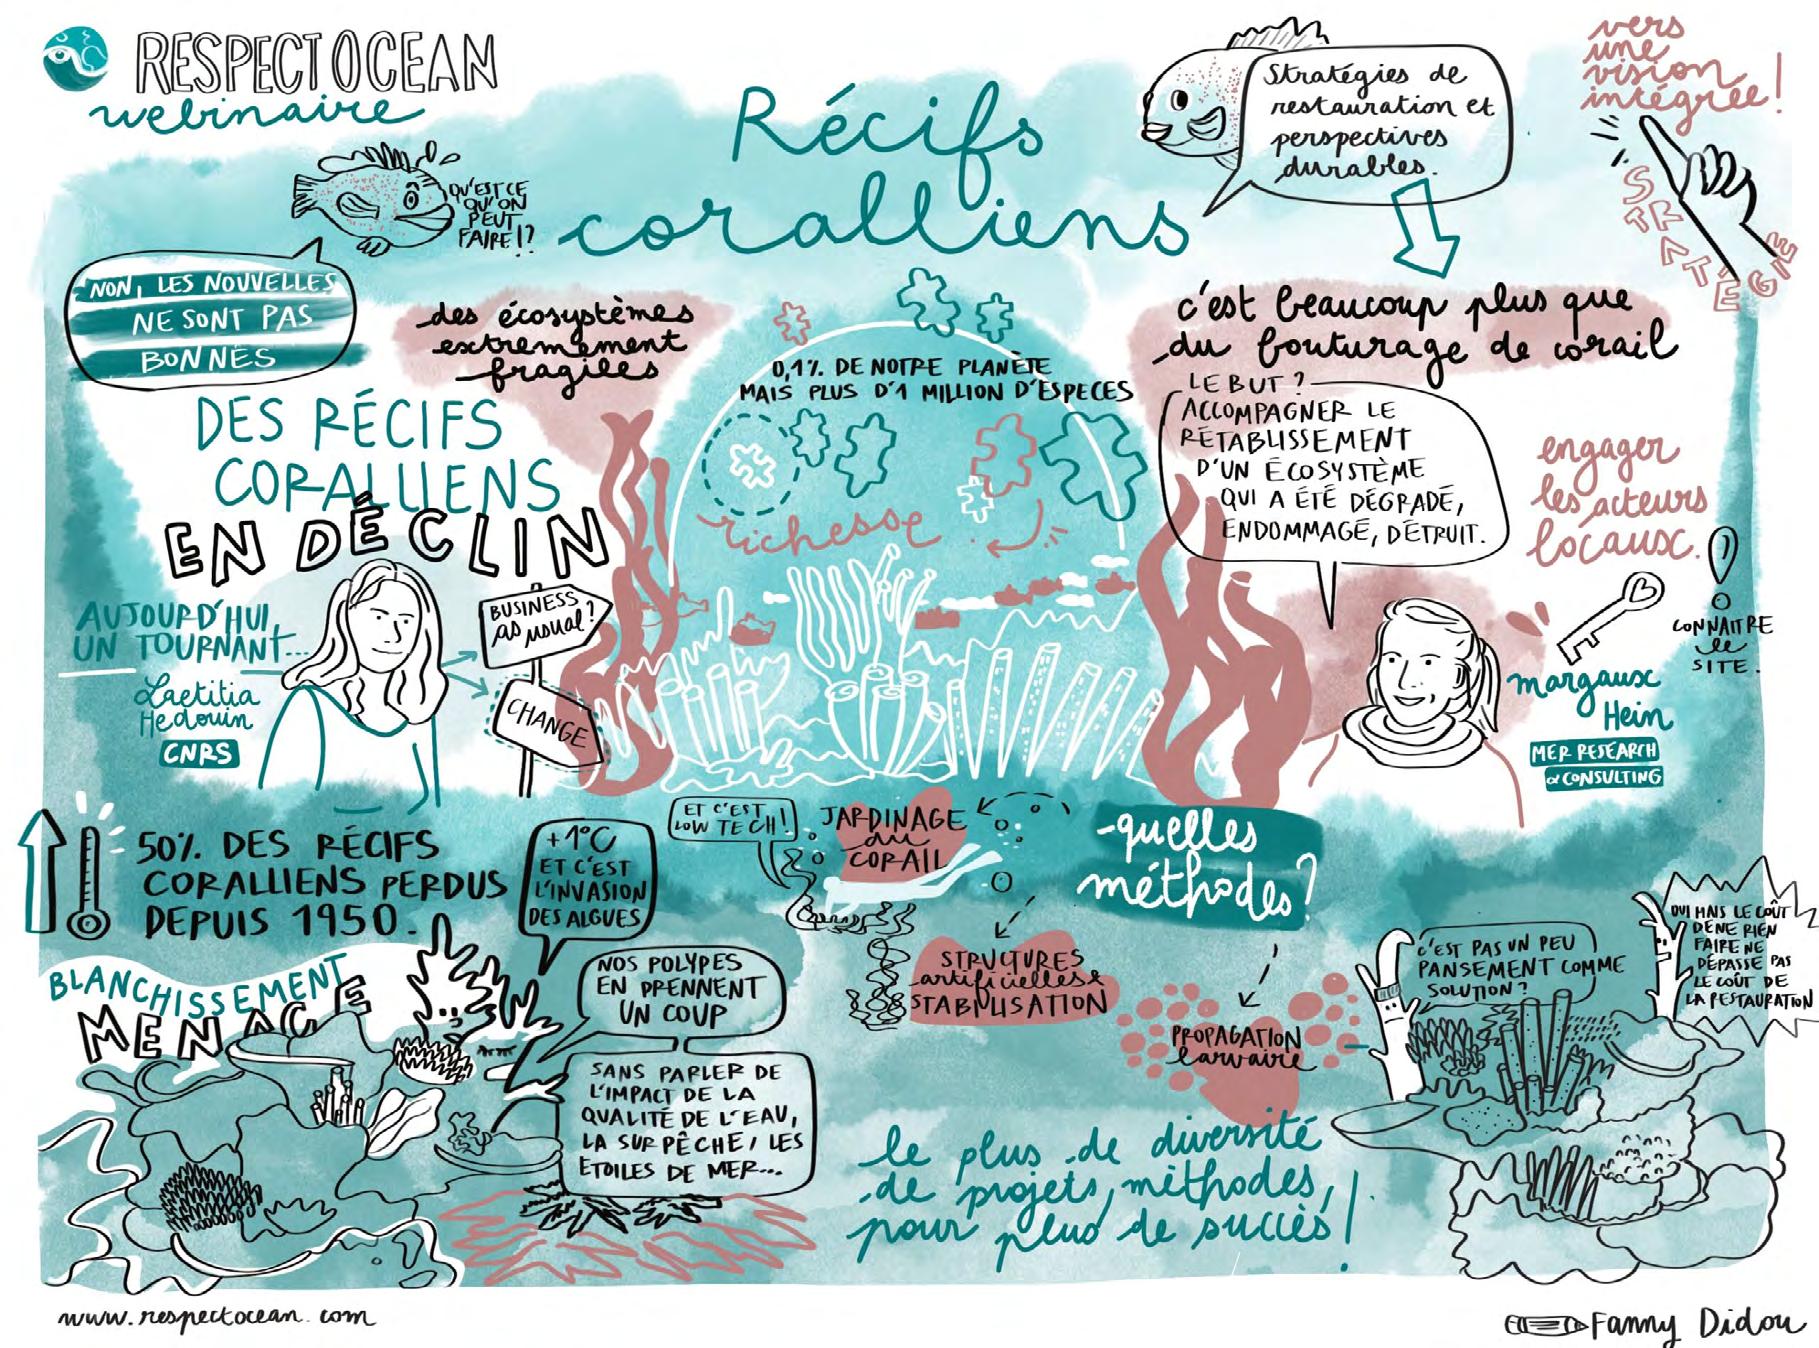 RESPECTOCEAN
webinaire
Récifs
coralliens
QU'EST CE
QU'ON
PEUT
FAIRE !?
NON, LES NOUVELLES
NE SONT PAS
BONNES
Stratégies de
restauration et
perspectives
durables.
vers
une
vision
intégrée !
STRATÉGIE
des écosystèmes
extrêmement
fragiles
DES RÉCIFS
CORALLIENS
EN DÉCLIN
AUJOURD'HUI,
UN TOURNANT...
Laetitia
Hedouin
CNRS
BUSINESS
as usual ?
CHANGE
0,1% DE NOTRE PLANÈTE
MAIS PLUS D'1 MILLION D'ESPECES
richesse
c'est beaucoup plus que
du bouturage de corail
LE BUT ?
ACCOMPAGNER LE
RÉTABLISSEMENT
D'UN ÉCOSYSTÈME
QUI A ÉTÉ DÉGRADÉ,
ENDOMMAGÉ, DÉTRUIT.
engager
les acteurs
locaux.
CONNAITRE
le
SITE.
margaux
Hein
MER RESEARCH
& CONSULTING
50% DES RÉCIFS
CORALLIENS PERDUS
DEPUIS 1950.
+1°C
ET C'EST
L'INVASION
DES ALGUES
BLANCHISSEMENT
MENACE
NOS POLYPES
EN PRENNENT
UN COUP
SANS PARLER DE
L'IMPACT DE LA
QUALITÉ DE L'EAU,
LA SURPÊCHE, LES
ETOILES DE MER...
ET C'EST
LOW TECH !
JARDINAGE
du
CORAIL
-quelles
méthodes ?
STRUCTURES
artificielles &
STABILISATION
PROPAGATION
larvaire
C'EST PAS UN PEU
PANSEMENT COMME
SOLUTION ?
OUI MAIS LE COÛT
DE NE RIEN
FAIRE NE
DÉPASSE PAS
LE COÛT DE
LA RESTAURATION
le plus de diversité
de projets, méthodes,
pour plus de succès !
www.respectocean.com
Fanny Didou